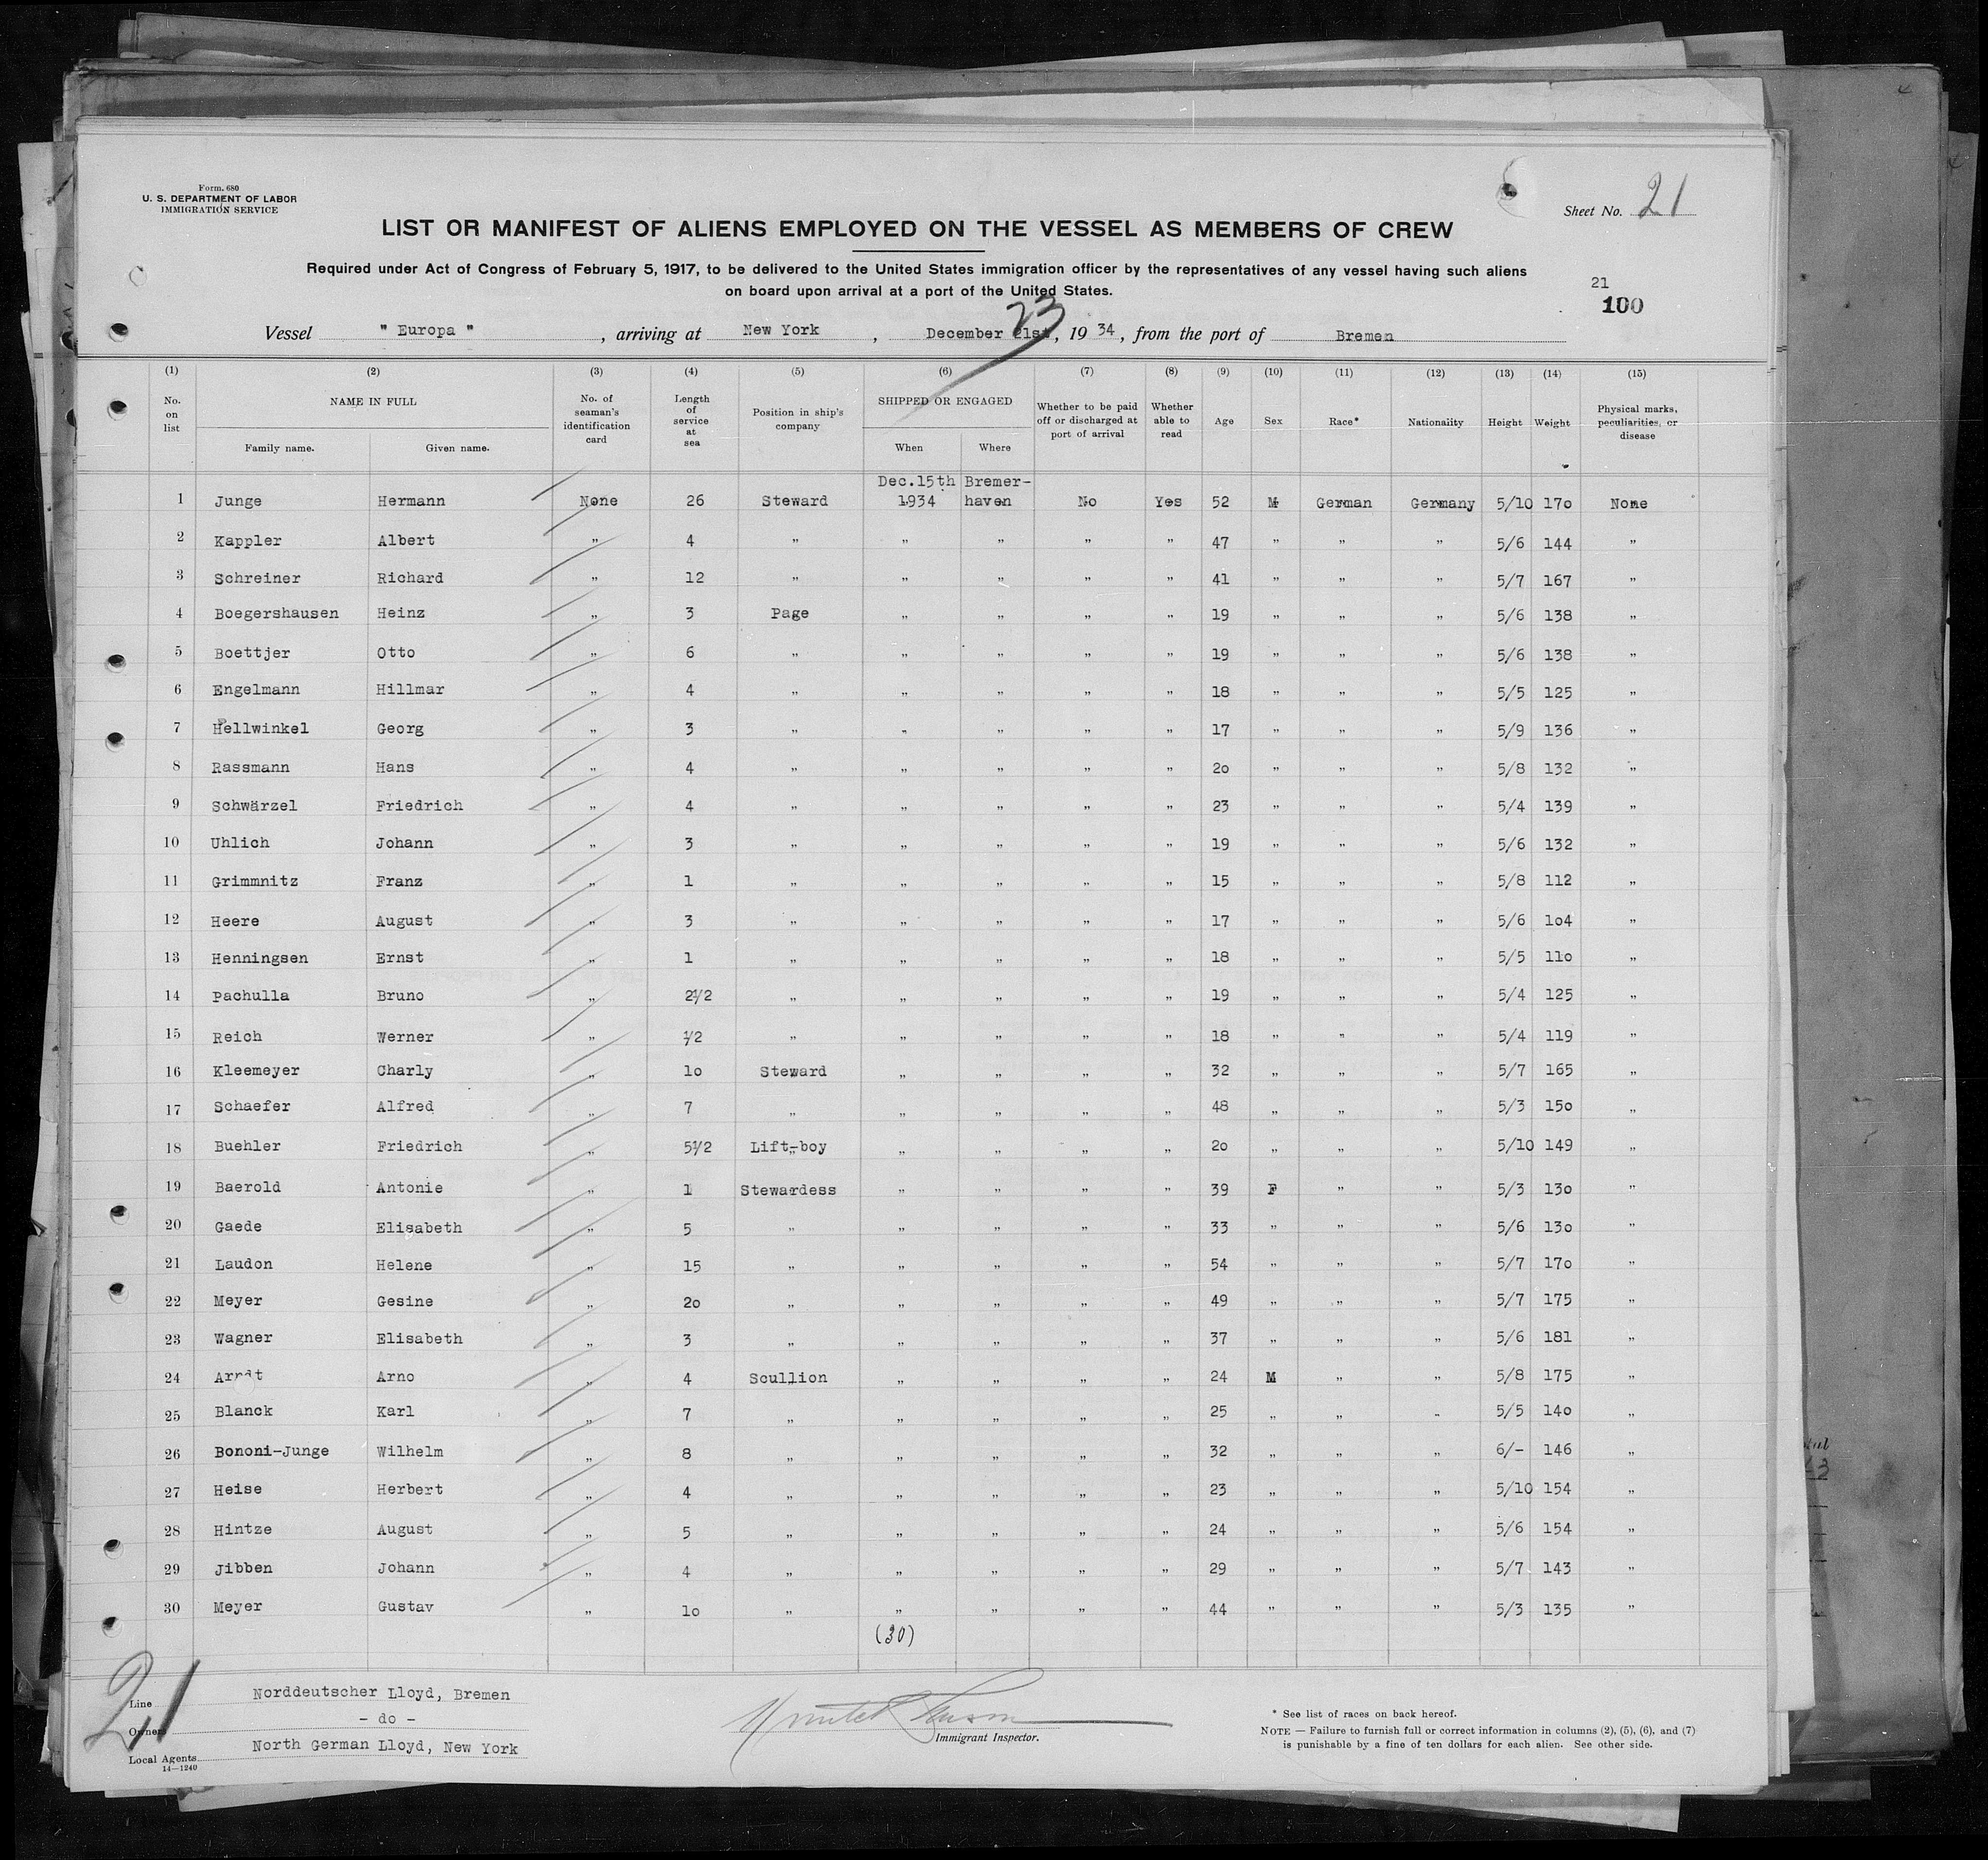 Form. 680
U. S. DEPARTMENT OF LABOR
IMMIGRATION SERVICE
Sheet No. 21
LIST OR MANIFEST OF ALIENS EMPLOYED ON THE VESSEL AS MEMBERS OF CREW
Required under Act of Congress of February 5, 1917, to be delivered to the United States immigration officer by the representatives of any vessel having such aliens
on board upon arrival at a port of the United States.
21
100
Vessel " Europa " , arriving at New York , December 21st 23, 19 34, from the port of Bremen
(1) (2) (3) (4) (5) (6) (7) (8) (9) (10) (11) (12) (13) (14) (15)
No. on list NAME IN FULL Family name. Given name. No. of seaman's identification card Length of service at sea Position in ship's company SHIPPED OR ENGAGED When Where Whether to be paid off or discharged at port of arrival Whether able to read Age Sex Race* Nationality Height Weight Physical marks, peculiarities, or disease
1 Junge Hermann None 26 Steward Dec.15th 1934 Bremer-haven No Yes 52 M German Germany 5/10 170 None
2 Kappler Albert " 4 " " " " " 47 " " " 5/6 144 "
3 Schreiner Richard " 12 " " " " " 41 " " " 5/7 167 "
4 Boegershausen Heinz " 3 Page " " " " 19 " " " 5/6 138 "
5 Boettjer Otto " 6 " " " " " 19 " " " 5/6 138 "
6 Engelmann Hillmar " 4 " " " " " 18 " " " 5/5 125 "
7 Hellwinkel Georg " 3 " " " " " 17 " " " 5/9 136 "
8 Rassmann Hans " 4 " " " " " 20 " " " 5/8 132 "
9 Schwärzel Friedrich " 4 " " " " " 23 " " " 5/4 139 "
10 Uhlich Johann " 3 " " " " " 19 " " " 5/6 132 "
11 Grimmnitz Franz " 1 " " " " " 15 " " " 5/8 112 "
12 Heere August " 3 " " " " " 17 " " " 5/6 104 "
13 Henningsen Ernst " 1 " " " " " 18 " " " 5/5 110 "
14 Pachulla Bruno " 2½ " " " " " 19 " " " 5/4 125 "
15 Reich Werner " ½ " " " " " 18 " " " 5/4 119 "
16 Kleemeyer Charly " 10 Steward " " " " 32 " " " 5/7 165 "
17 Schaefer Alfred " 7 " " " " " 48 " " " 5/3 150 "
18 Buehler Friedrich " 5½ Lift-boy " " " " 20 " " " 5/10 149 "
19 Baerold Antonie " 1 Stewardess " " " " 39 F " " 5/3 130 "
20 Gaede Elisabeth " 5 " " " " " 33 " " " 5/6 130 "
21 Laudon Helene " 15 " " " " " 54 " " " 5/7 170 "
22 Meyer Gesine " 20 " " " " " 49 " " " 5/7 175 "
23 Wagner Elisabeth " 3 " " " " " 37 " " " 5/6 181 "
24 Arndt Arno " 4 Scullion " " " " 24 M " " 5/8 175 "
25 Blanck Karl " 7 " " " " " 25 " " " 5/5 140 "
26 Bononi-Junge Wilhelm " 8 " " " " " 32 " " " 6/- 146 "
27 Heise Herbert " 4 " " " " " 23 " " " 5/10 154 "
28 Hintze August " 5 " " " " " 24 " " " 5/6 154 "
29 Jibben Johann " 4 " " " " " 29 " " " 5/7 143 "
30 Meyer Gustav " 10 " " " " " 44 " " " 5/3 135 "
(30)
21
Line Norddeutscher Lloyd, Bremen
Owners - do -
Local Agents North German Lloyd, New York
14—1240
Immigrant Inspector.
* See list of races on back hereof.
NOTE — Failure to furnish full or correct information in columns (2), (5), (6), and (7)
is punishable by a fine of ten dollars for each alien. See other side.